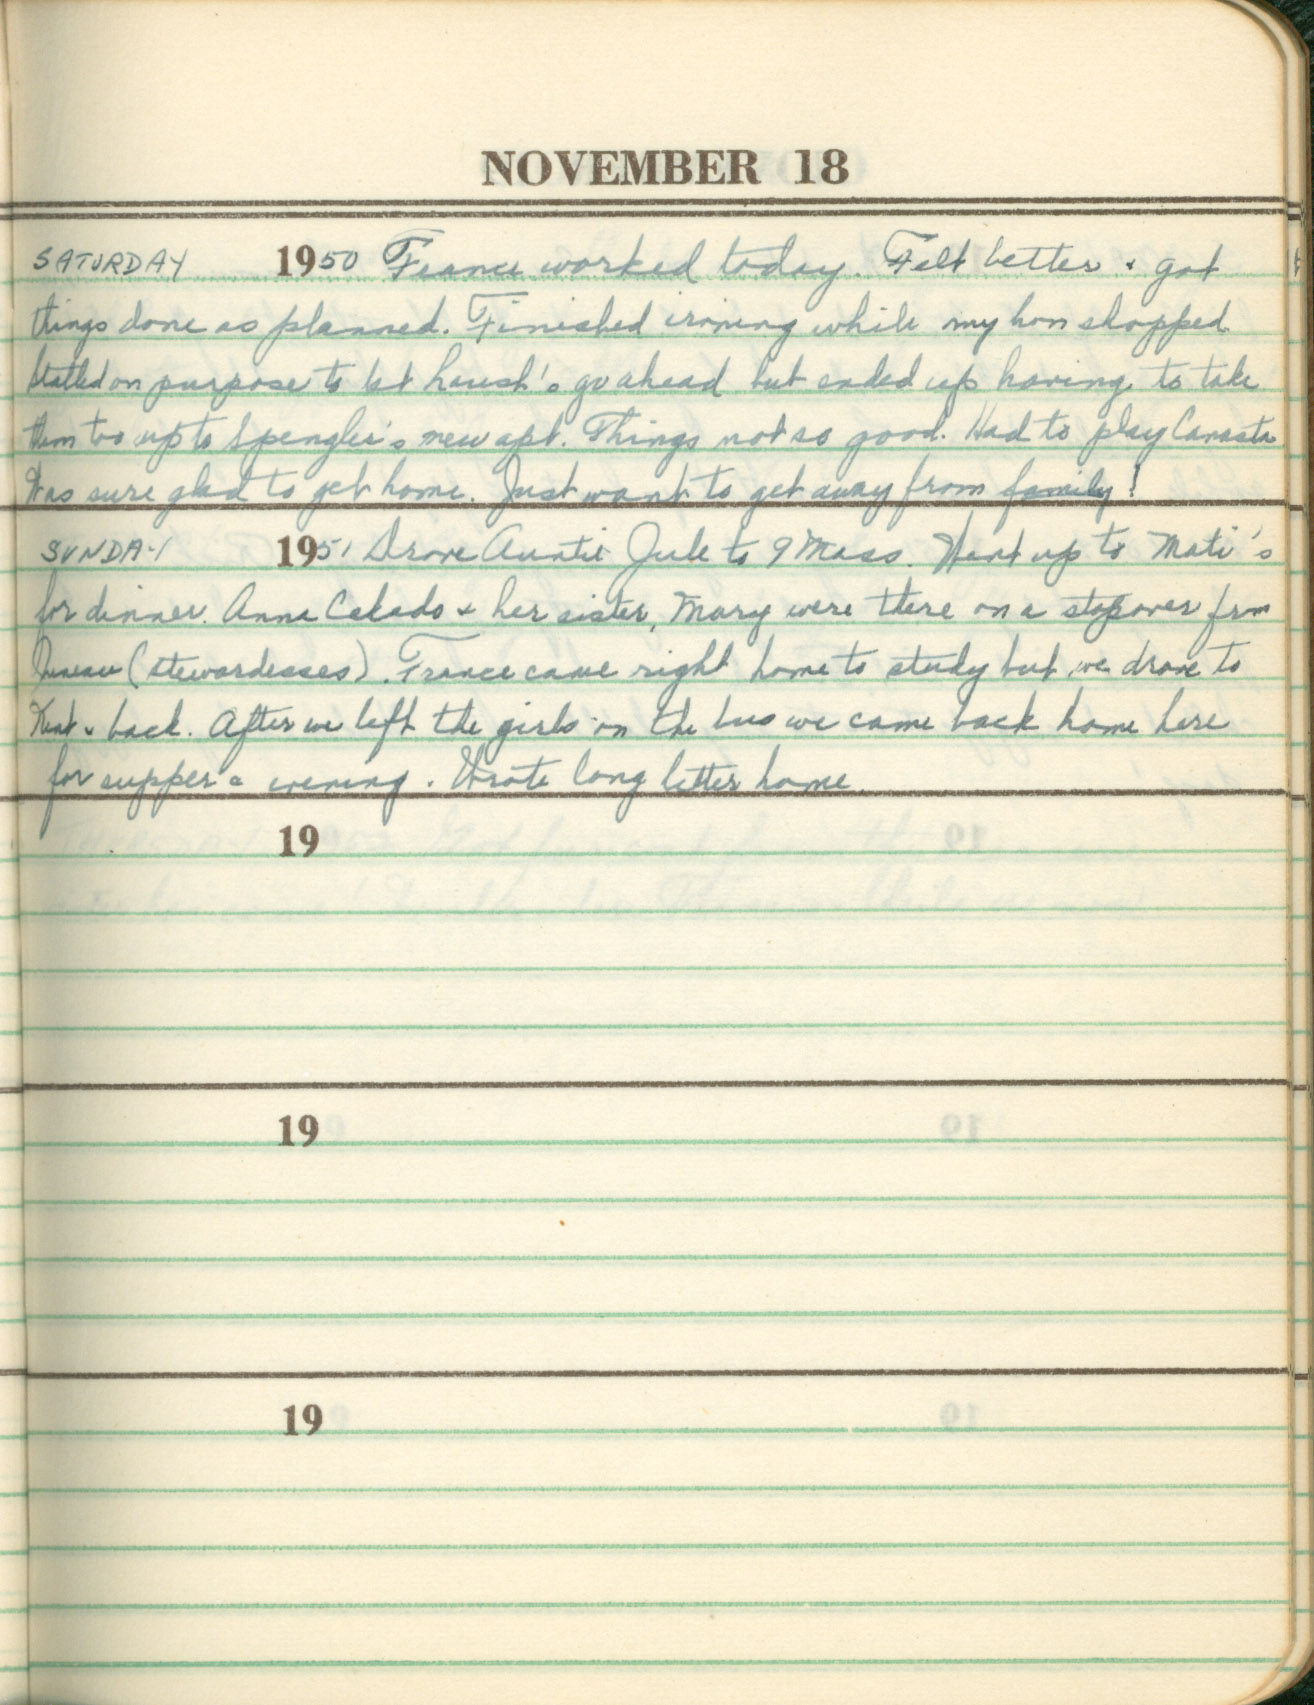 NOVEMBER 18
SATURDAY 1950 France worked today. Felt better & got
things done as planned. Finished ironing while my hon shopped
Stalled on purpose to let go ahead but ended up having to take
them too up to Spengler's new apt. Things not so good. Had to play Canasta
Was sure glad to get home. Just want to get away from family!
SUNDAY 1951 Drove Auntie Jule to 9 Mass. Went up to Mati's
for dinner. Anna & her sister, Mary were there on a stopover from
Juneau (stewardesses). France came right home to study but we drove to
Kent & back. After we left the girls on the bus we came back home here
for supper & evening. Wrote long letter home.
19
19
19